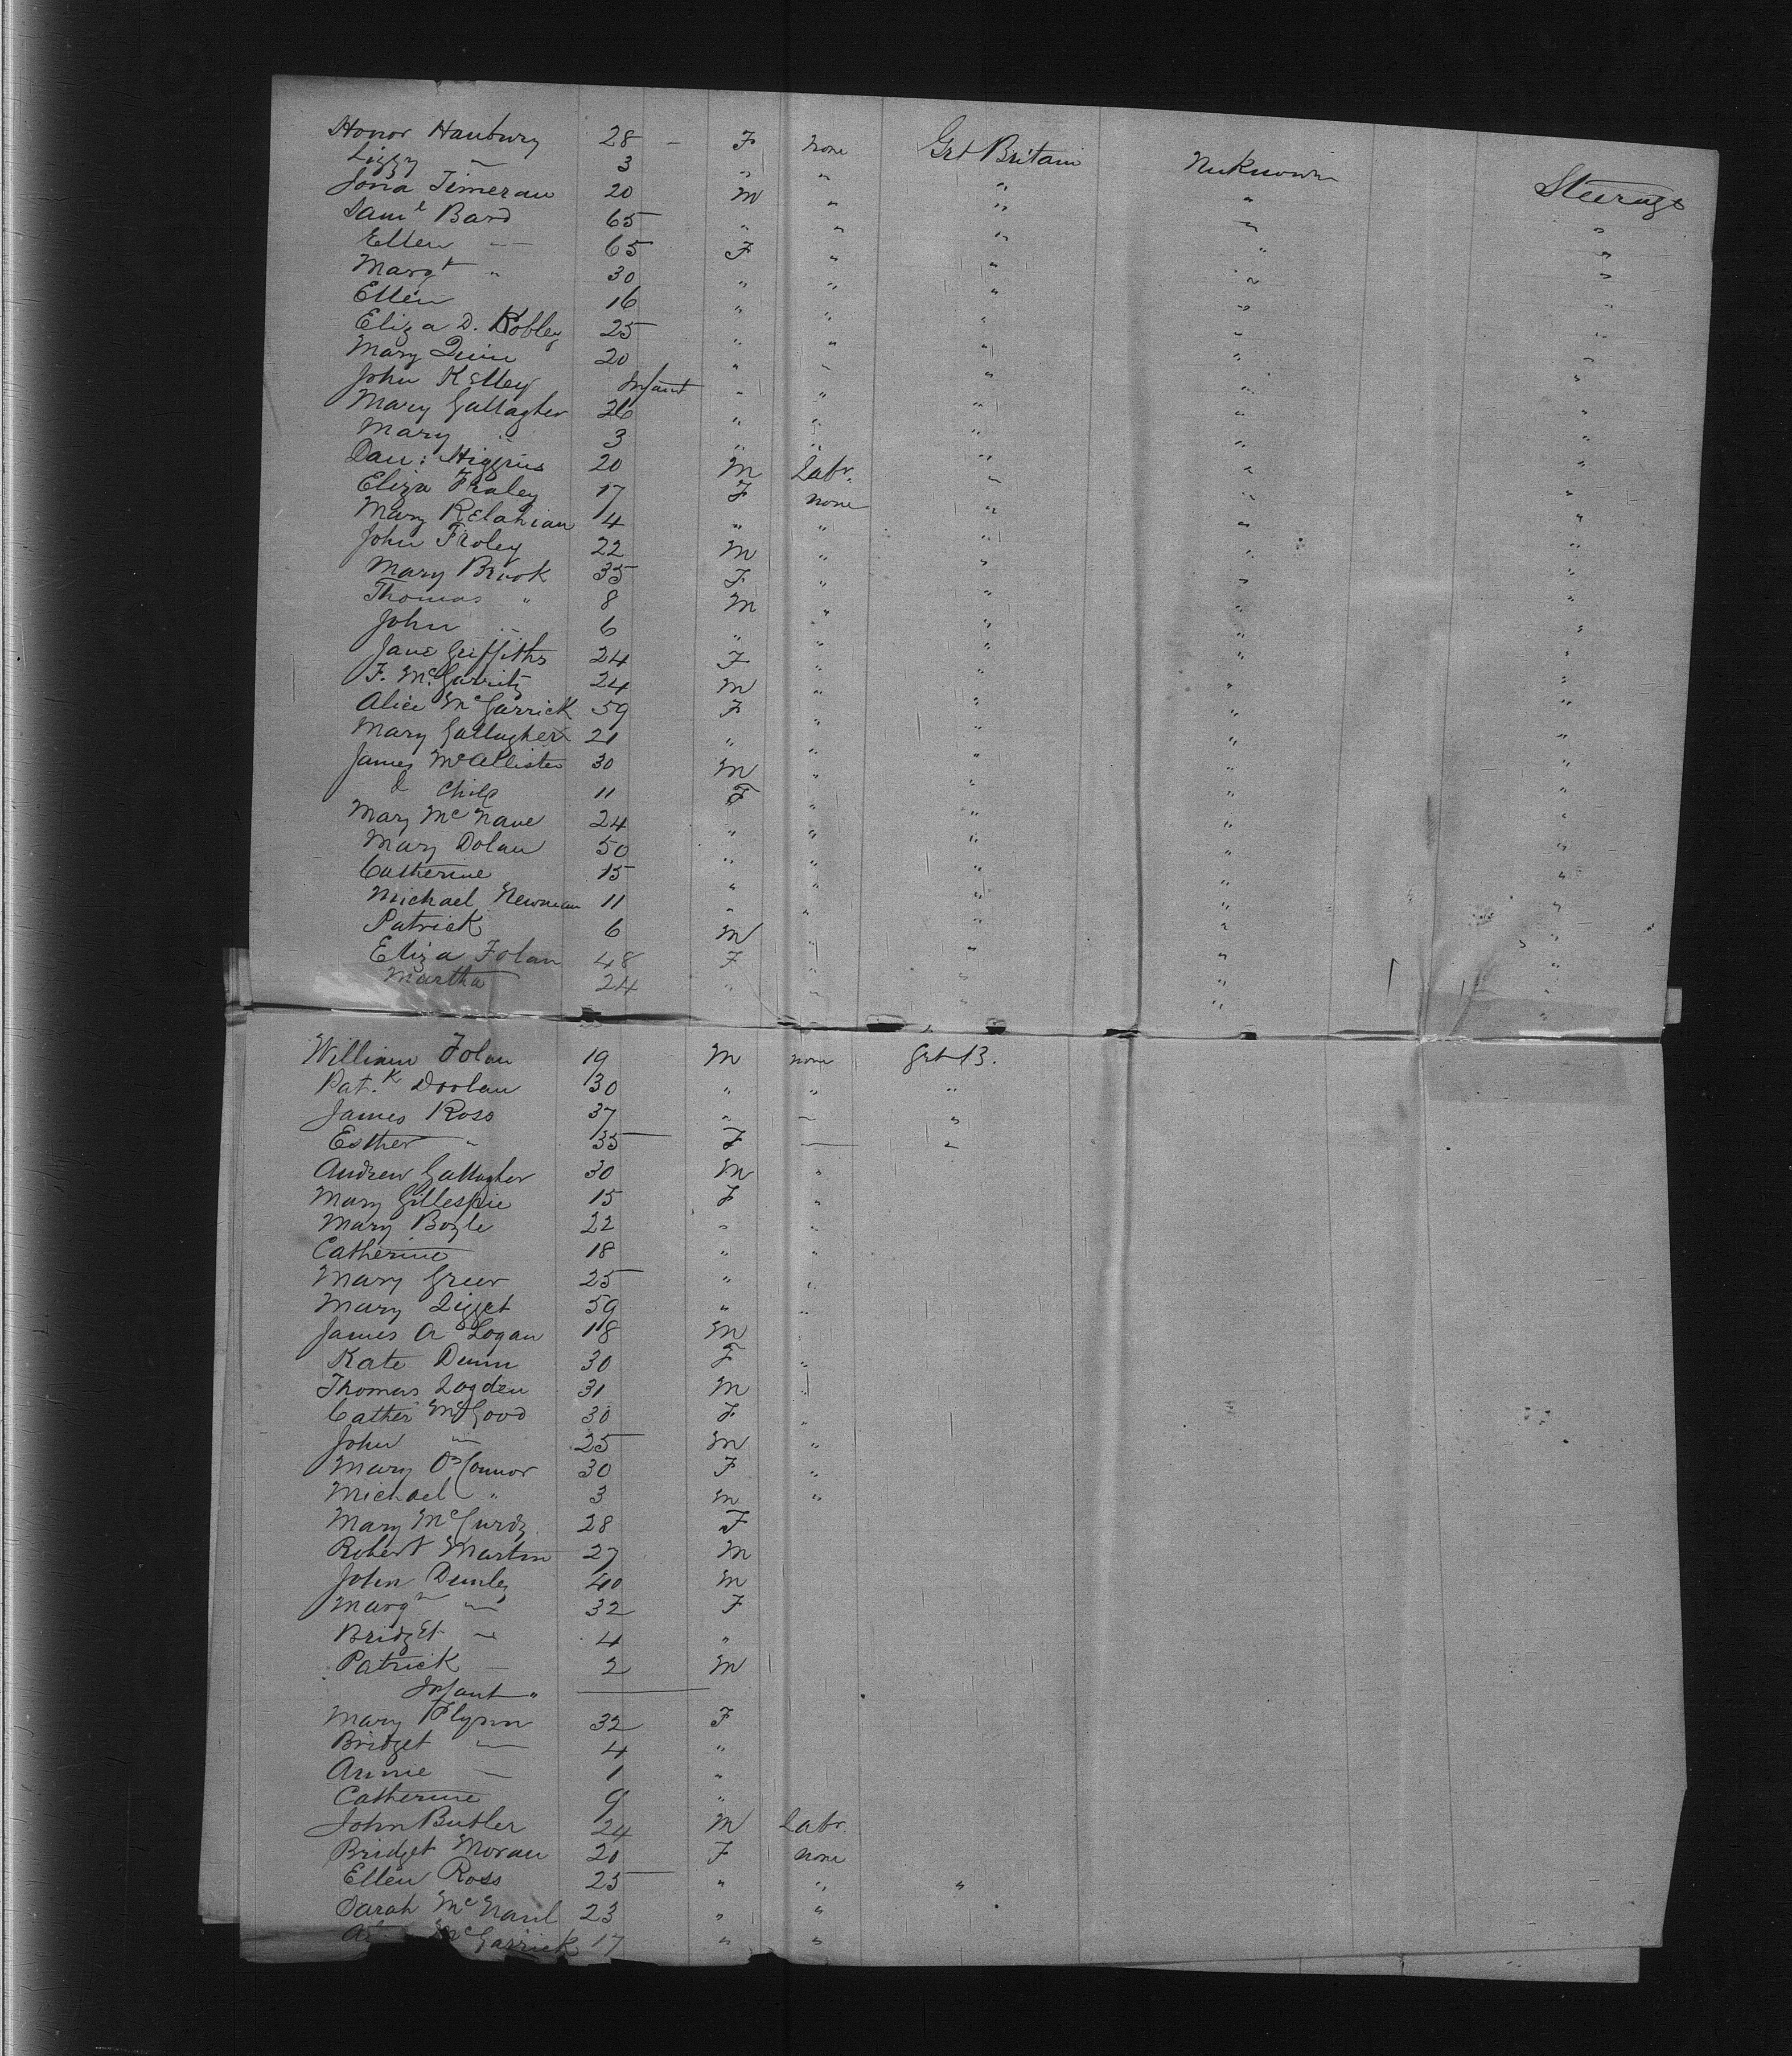 Honor Hanbury 28 – F none Grt Britain Unknown Steerage
Lizzy " 3 " " " " "
Jona Timeran 20 M " " " "
Saml Bard 65 " " " " "
Ellen — 65 F " " " "
Margt " 30 " " " " "
Ellen 16 " " " " "
Eliza D. Robley 25 " " " " "
Mary Quin 20 " " " " "
John Kelley Infant " " " " "
Mary Gallagher 26 " " " " "
Mary " 3 " " " " "
Dan: Higgins 20 M Labr. " " "
Eliza Fraley 17 F none " " "
Mary Kelahian 4 " " " " "
John Froley 22 M " " " "
Mary Brook 35 F " " " "
Thomas " 8 M " " " "
John " 6 " " " " "
Jane Griffiths 24 F " " " "
F. McGarrity 24 M " " " "
Alice McGarrick 59 F " " " "
Mary Gallagher 21 " " " " "
James McAllister 30 M " " " "
& Child 11 F " " " "
Mary McNave 24 " " " " "
Mary Dolan 50 " " " " "
Catherine 15 " " " " "
Michael Newman 11 " " " " "
Patrick 6 M " " " "
Eliza Folan 48 F " " " "
Martha 24 " " " " "
William Folan 19 M none Grt B.
Pat.k Doolan 30 " " "
James Ross 37 " — "
Esther " 35 F — "
Andrew Gallagher 30 M "
Mary Gillespie 15 F "
Mary Boyle 22 " "
Catherine 18 " "
Mary Greer 25 " "
Mary Ligget 59 " "
James A Logan 18 M "
Kate Dunn 30 F "
Thomas Logden 31 M "
Cather McGood 30 F "
John " 25 M "
Mary O'Connor 30 F "
Michael " 3 M "
Mary McCurdy 28 F
Robert Martin 27 M
John Dunley 40 M
Margt " 32 F
Bridget " 4 "
Patrick — 2 M
Infant " —
Mary Flynn 32 F
Bridget — 4 "
Annie — 1 "
Catherine 9 "
John Butler 24 M Labr.
Bridget Moran 20 F none
Ellen Ross 25 " " "
Sarah McNaul 23 " "
McGarrick 17 " "